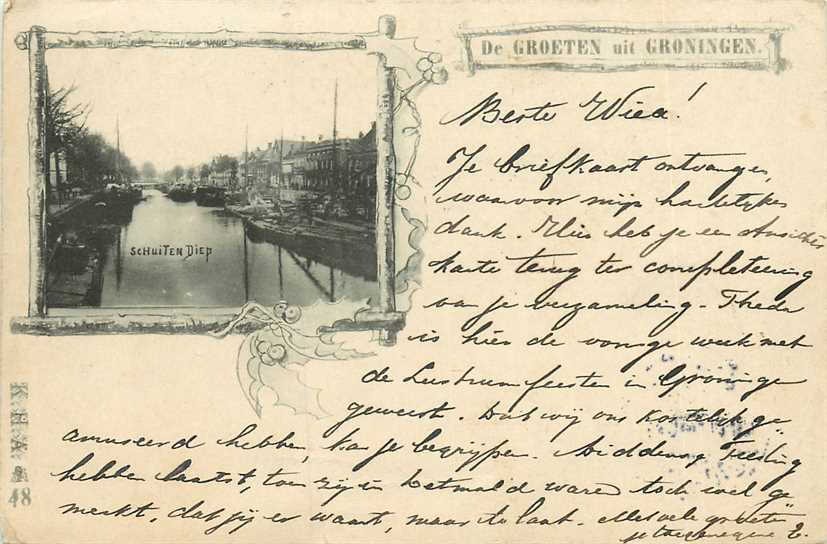 De GROETEN uit GRONINGEN.
Beste Wiea!
Je briefkaart ontvangen,
waarvoor mijn hartelijken
dank. Hier heb je een Ansichts
kaarte terug ter completeering
van je verzameling. Theda
is hier de vorige week met
de Lustrumfeesten in Groninge
geweest. Dat wij ons kostelijk ge
amuseerd hebben, kan je begrijpen.
hebben laatst, toen zij in Detmold waren toch wel ge
merkt, dat jij er waart, maar te laat. Met vele groeten
SCHUITEN DIEP
48